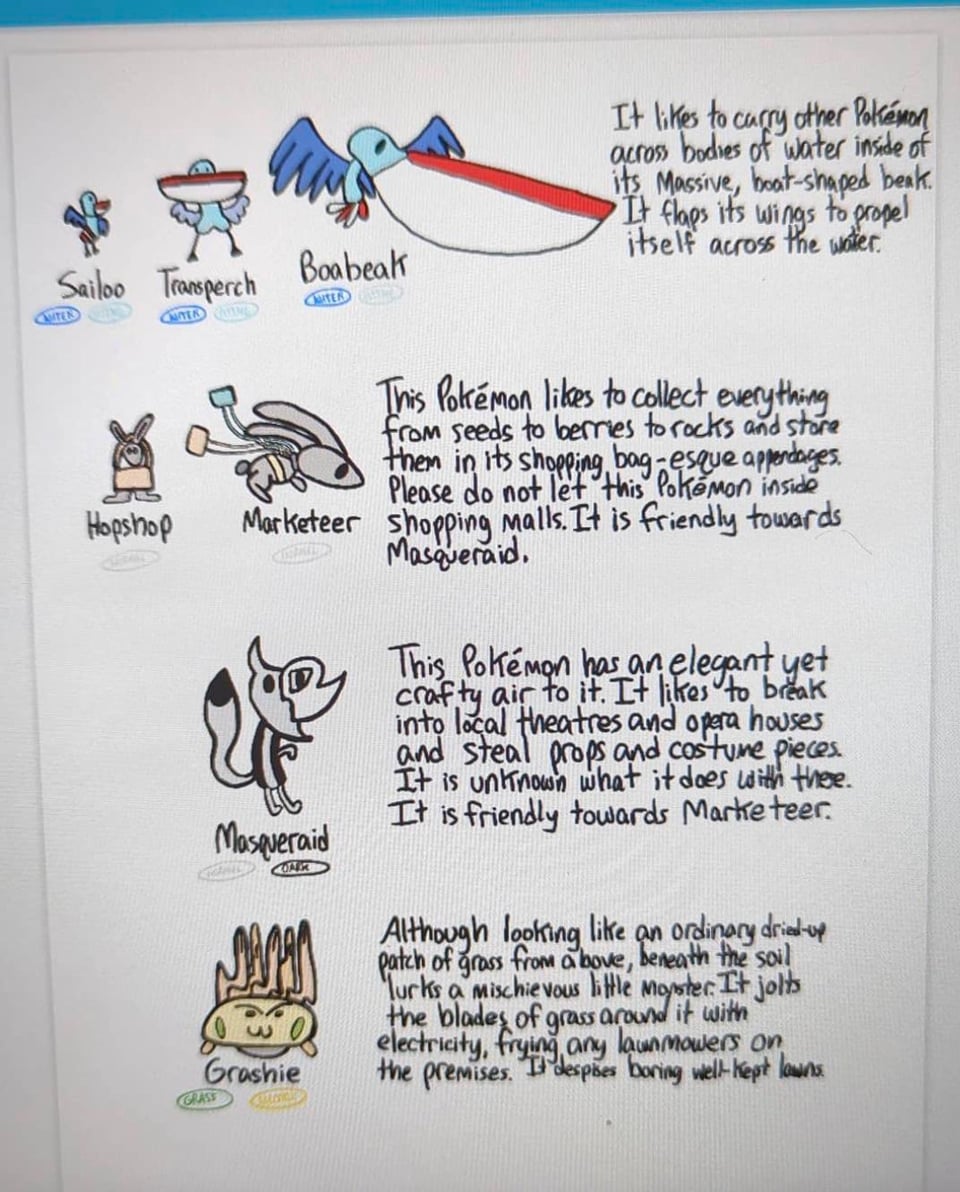 It likes to carry other Pokémon
across bodies of water inside of
its massive, boat-shaped beak.
It flaps its wings to propel
itself across the water.
Sailoo
Transperch
Boabeak
WATER
WATER
WATER
This Pokémon likes to collect everything
from seeds to berries to rocks and store
them in its shopping bag-esque appendages.
Please do not let this Pokémon inside
shopping malls. It is friendly towards
Masqueraid.
Hopshop
Marketeer
NORMAL
NORMAL
This Pokémon has an elegant yet
crafty air to it. It likes to break
into local theatres and opera houses
and steal props and costume pieces.
It is unknown what it does with these.
It is friendly towards Marketeer.
Masqueraid
NORMAL
DARK
Although looking like an ordinary dried-up
patch of grass from above, beneath the soil
lurks a mischievous little monster. It jolts
the blades of grass around it with
electricity, frying any lawnmowers on
the premises. It despises boring well-kept lawns.
Grashie
GRASS